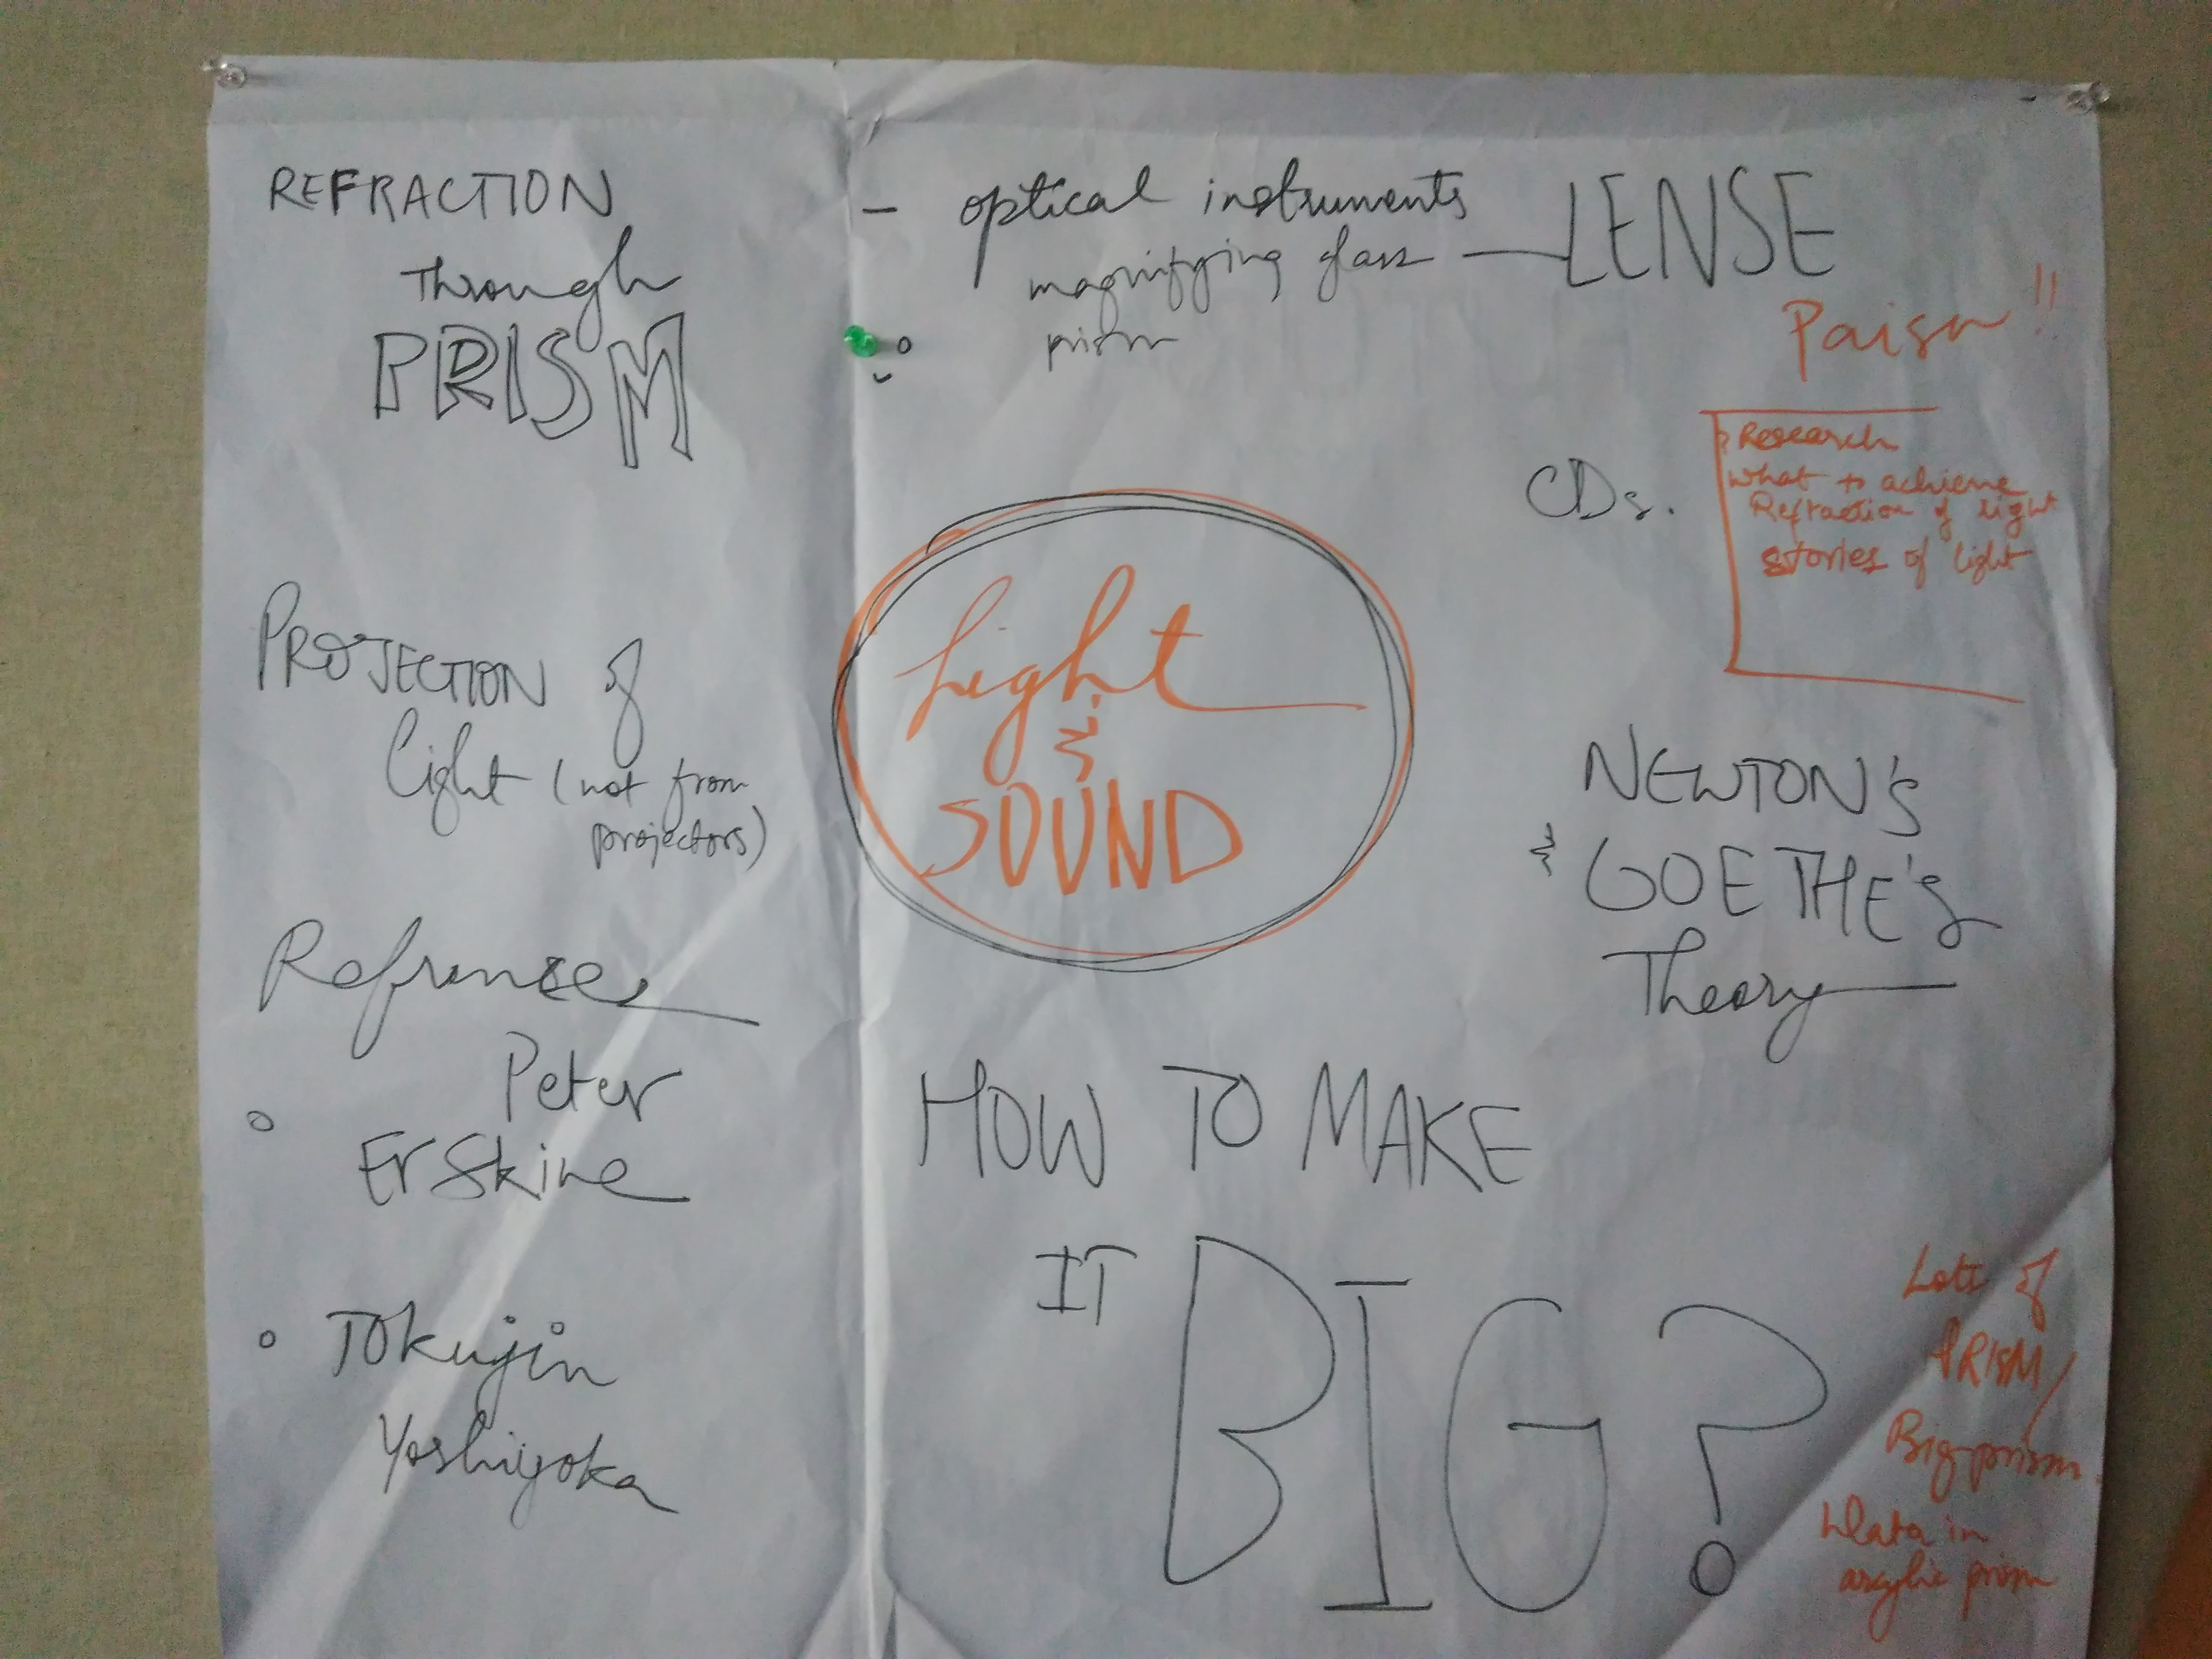 REFRACTION
Through
PRISM
- optical instruments
magnifying glass — LENSE
prism
Paisa !!
CDs.
Research
what to achieve
Refraction of light
stories of light
Light
&
SOUND
PROJECTION of
light (not from
projectors)
NEWTON'S
& GOETHE'S
Theory
Refrences
Peter
Erskine
Tokujin
Yoshiyoka
HOW TO MAKE
IT BIG?
Lots of
PRISM/
Big prism
Data in
prism